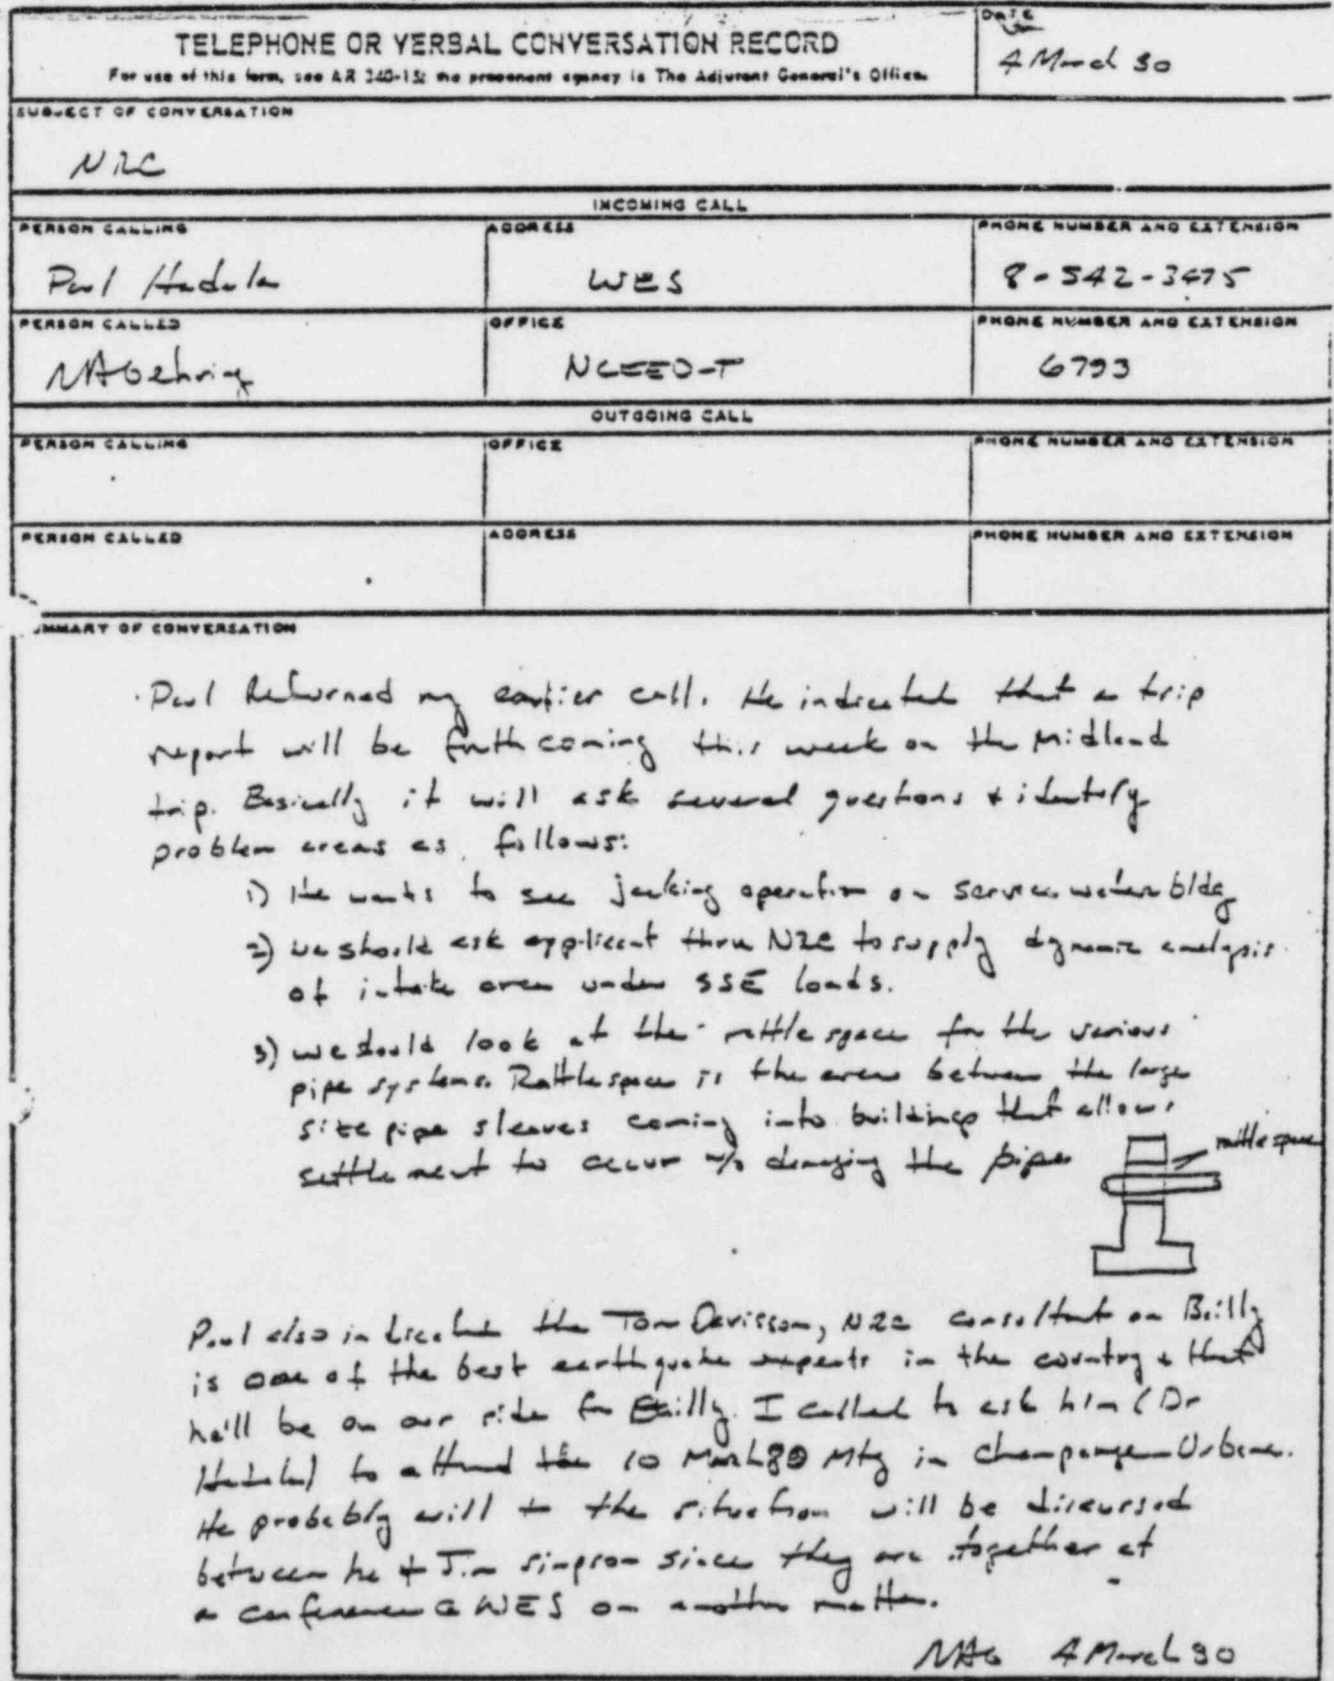 TELEPHONE OR VERBAL CONVERSATION RECORD
For use of this form, see AR 340-15; the proponent agency is The Adjutant General's Office.
DATE
4 March 80
SUBJECT OF CONVERSATION
NRC
INCOMING CALL
PERSON CALLING
ADDRESS
PHONE NUMBER AND EXTENSION
Paul Hadala
WES
8-542-3475
PERSON CALLED
OFFICE
PHONE NUMBER AND EXTENSION
NAGehring
NCEED-T
6793
OUTGOING CALL
PERSON CALLING
OFFICE
PHONE NUMBER AND EXTENSION
PERSON CALLED
ADDRESS
PHONE NUMBER AND EXTENSION
SUMMARY OF CONVERSATION
Paul Returned my earlier call. He indicated that a trip
report will be forthcoming this week on the Midland
trip. Basically it will ask several questions & identify
problem areas as follows:
1) He wants to see jacking operation on service water bldg
2) we should ask applicant thru NRC to supply dynamic analysis
of intake area under SSE loads.
3) we should look at the rattle space for the various
pipe systems. Rattle space is the area between the large
size pipe sleaves coming into buildings that allows
settlement to occur w/o damaging the pipe
rattle space
Paul also indicated the Tom Davisson, NRC consultant on Bailly
is one of the best earthquake experts in the country & that
he'll be on our side for Bailly. I called to ask him (Dr
Hadala) to attend the 10 March 80 Mtg in Champange-Urbana.
He probably will & the situation will be discussed
between he & Jim Simpson since they are together at
a conference @ WES on another matter.
NAG 4 March 80